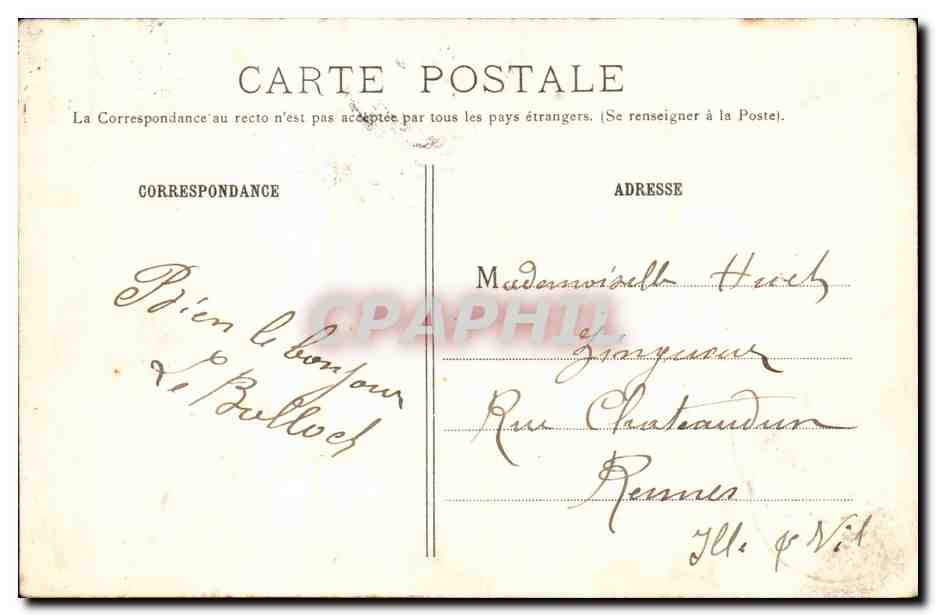 CARTE POSTALE
La Correspondance au recto n'est pas acceptée par tous les pays étrangers. (Se renseigner à la Poste).
CORRESPONDANCE
Bien le bonjour
Le Bolloch
ADRESSE
Mademoiselle Huet
Zingueur
Rue Chateaudun
Rennes
Ille & Vil
CPAPHIL